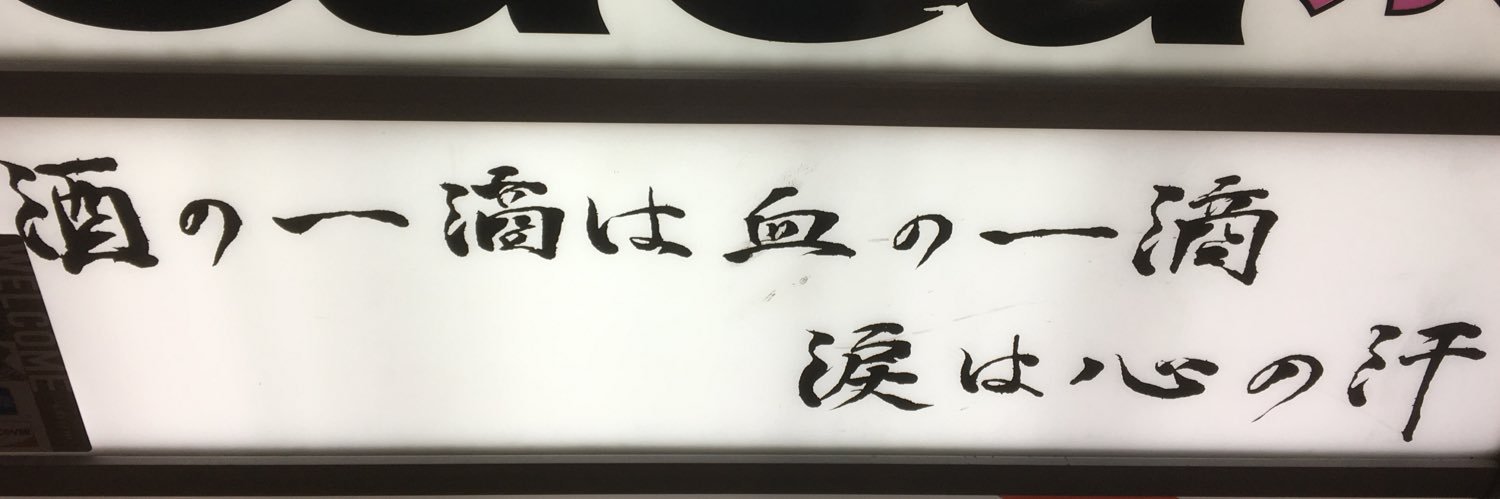 酒の一滴は血の一滴
涙は心の汗
WELCOME